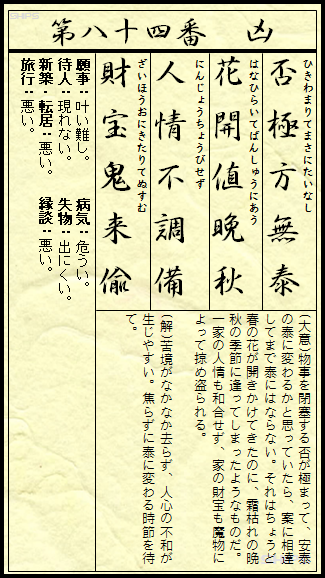 第八十四番 凶
ひきわまりてまさにたいなし
否極方無泰
はなひらいてばんしゅうにあう
花開値晩秋
にんじょうちょうびせず
人情不調備
ざいほうおにきたりてぬすむ
財宝鬼来偸
(大意)物事を閉塞する否が極まって、安泰
の泰に変わるかと思っていたら、案に相違
してまで泰にはならない。それはちょうど
春の花が開きかけてきたのに、霜枯れの晩
秋の季節に逢ってしまったようなものだ。
一家の人情も和合せず、家の財宝も魔物に
よって掠め盗られる。
(解)苦境がなかなか去らず、人心の不和が
生じやすい。焦らずに泰に変わる時節を待
て。
願事：叶い難し。
待人：現れない。
新築・転居：悪い。
旅行：悪い。
病気：危うい。
失物：出にくい。
縁談：悪い。